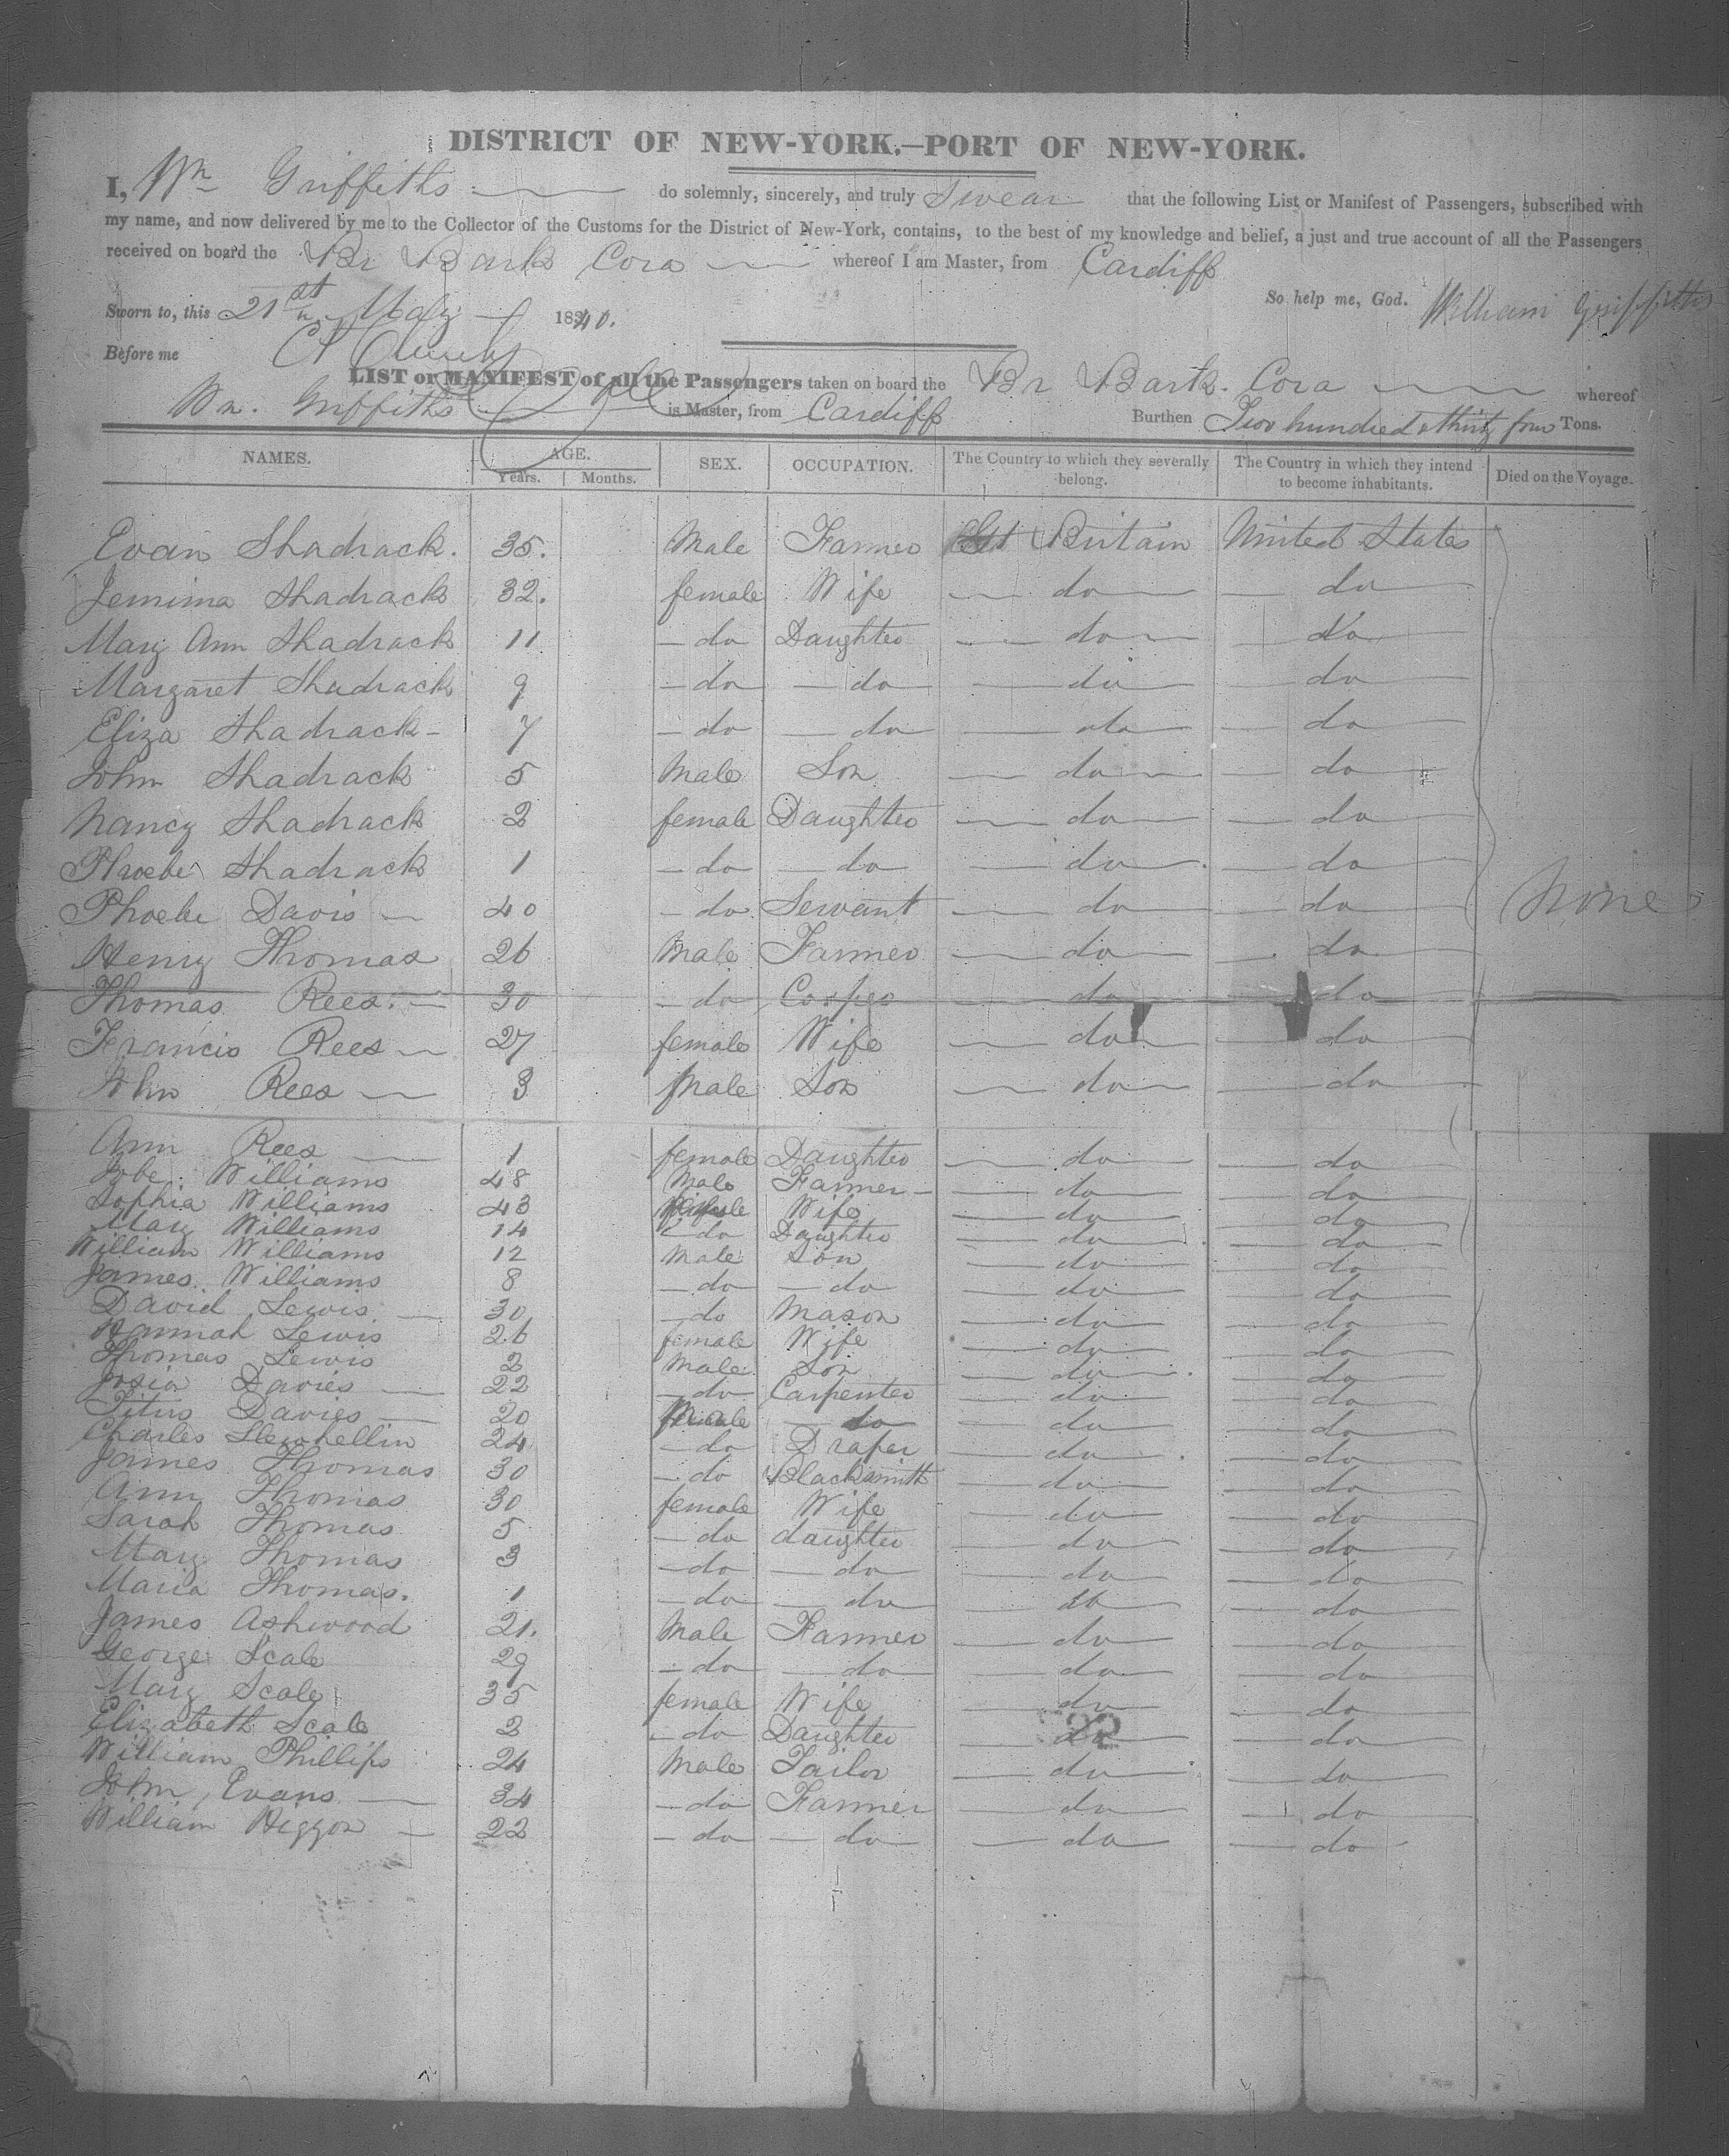 DISTRICT OF NEW-YORK.—PORT OF NEW-YORK.
I, Wm Griffiths do solemnly, sincerely, and truly Swear that the following List or Manifest of Passengers, subscribed with
my name, and now delivered by me to the Collector of the Customs for the District of New-York, contains, to the best of my knowledge and belief, a just and true account of all the Passengers
received on board the Br Bark Cora whereof I am Master, from Cardiff
So help me, God. William Griffiths
Sworn to, this 21st May 1840.
Before me
LIST or MANIFEST of all the Passengers taken on board the Br Bark. Cora whereof
Wm. Griffiths is Master, from Cardiff Burthen Two hundred & thirty four Tons.
NAMES. AGE. Years. Months. SEX. OCCUPATION. The Country to which they severally belong. The Country in which they intend to become inhabitants. Died on the Voyage.
Evan Shadrack. 35. Male Farmer Gt Britain United States
Jemima Shadrack 32. female Wife do do
Mary Ann Shadrack 11 do Daughter do do
Margaret Shadrack 9 do do do do
Eliza Shadrack 7 do do do do
John Shadrack 5 Male Son do do
Nancy Shadrack 2 female Daughter do do
Phoebe Shadrack 1 do do do do
Phoebe Davis 40 do Servant do do None
Henry Thomas 26 Male Farmer do do
Thomas Rees. 30 do Cooper do do
Francis Rees 27 female Wife do do
John Rees 3 Male Son do do
Ann Rees 1 female Daughter do do
Jobe Williams 48 Male Farmer do do
Sophia Williams 43 Wife do do
Mary Williams 14 do Daughter do do
William Williams 12 Male Son do do
James Williams 8 do do do do
David Lewis 30 do Mason do do
Hannah Lewis 26 female Wife do do
Thomas Lewis 2 Male Son do do
Josia Davies 22 do Carpenter do do
Titus Davies 20 Male do do do
Charles Llewhellin 24 do Draper do do
James Thomas 30 do Blacksmith do do
Ann Thomas 30 female Wife do do
Sarah Thomas 5 do daughter do do
Mary Thomas 3 do do do do
Maria Thomas. 1 do do do do
James Ashwood 21. Male Farmer do do
George Scale 29 do do do do
Mary Scale 35 female Wife do do
Elizabeth Scale 2 do Daughter do do
William Phillips 24 Male Tailor do do
John Evans 34 do Farmer do do
William Higgon 22 do do do do